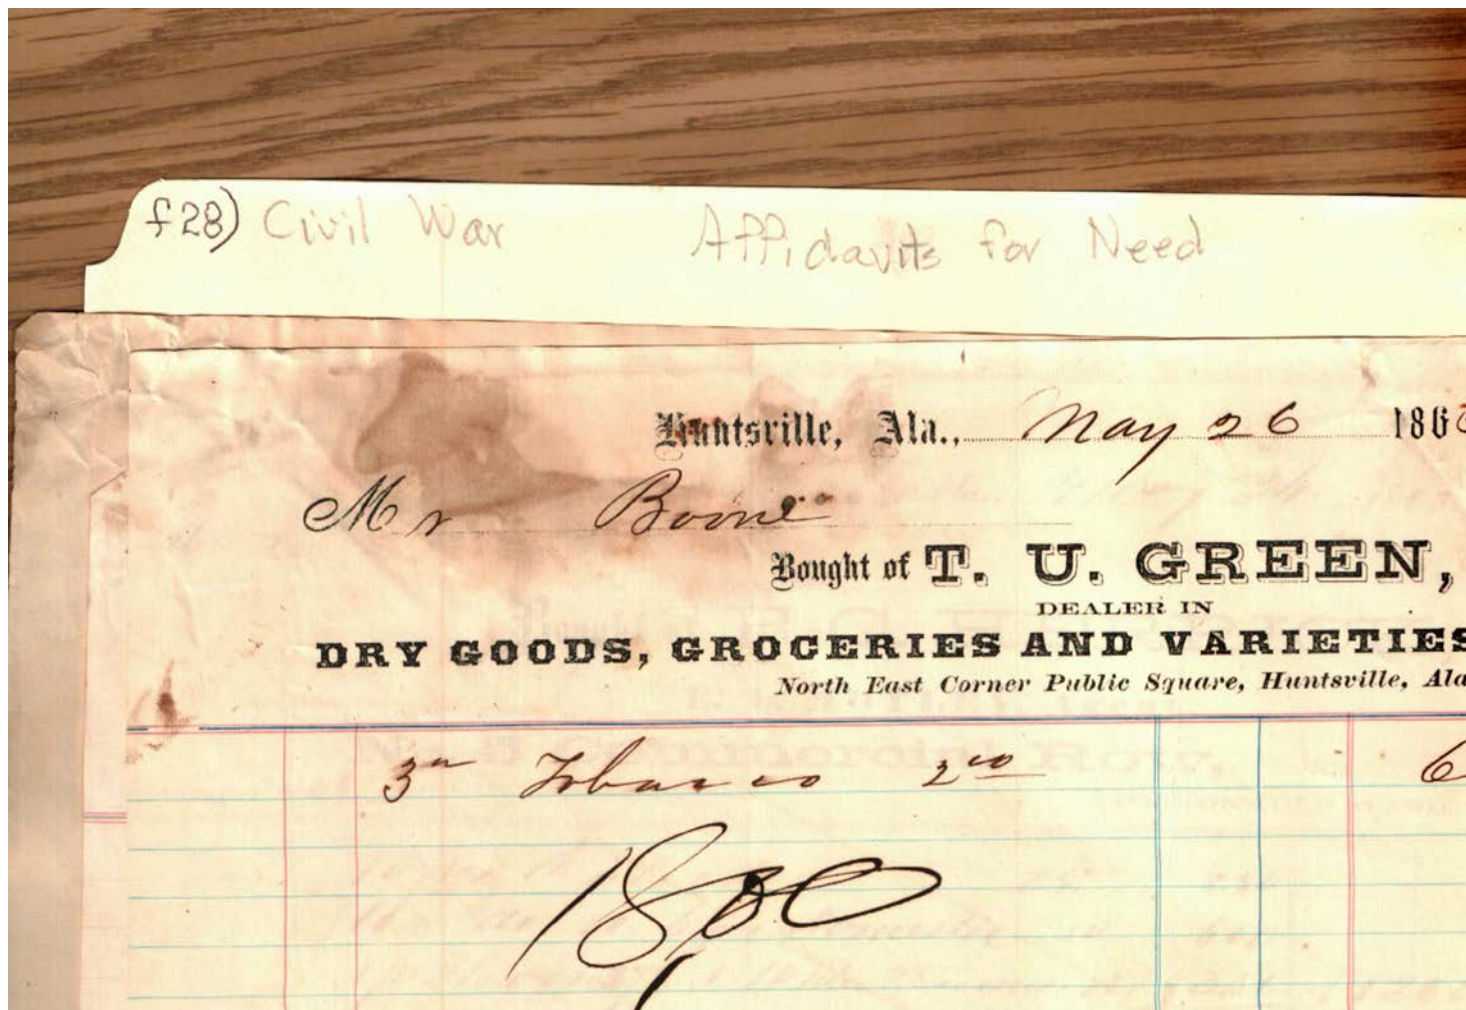 f28) Civil War Affidavits for Need
Huntsville, Ala., May 26 186
Mr Boone
Bought of T. U. GREEN,
DEALER IN
DRY GOODS, GROCERIES AND VARIETIES
North East Corner Public Square, Huntsville, Ala
3 Tobacco 2 00 6
1866